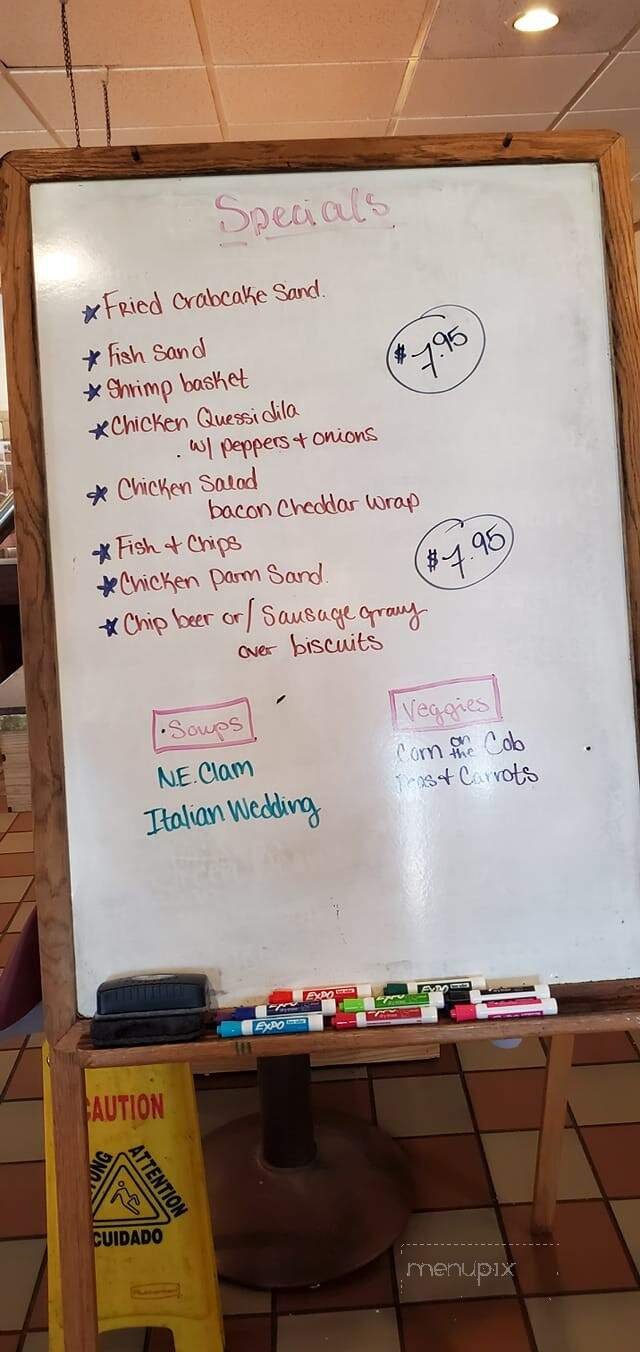 Specials
Fried Crabcake Sand.
Fish Sand
$7.95
Shrimp basket
Chicken Quessidila
w/ peppers + onions
Chicken Salad
bacon Cheddar Wrap
Fish + Chips
$7.95
Chicken Parm Sand.
Chip beer or/ Sausage gravy
over biscuits
Soups
Veggies
N.E. Clam
Corn on the Cob
Italian Wedding
Peas + Carrots
EXPO
EXPO
EXPO
EXPO
EXPO
CAUTION
ATTENTION
CUIDADO
Rubbermaid
menupix